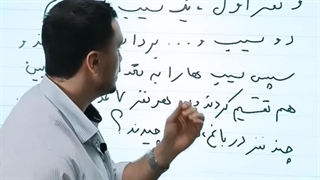 و نفر اول، یک سیب
دو سیب و ... بردا و
سپس سیب ها را به تعد
هم تقسیم کردند هر نفر ۷
چند نفر در باغ چیدند؟